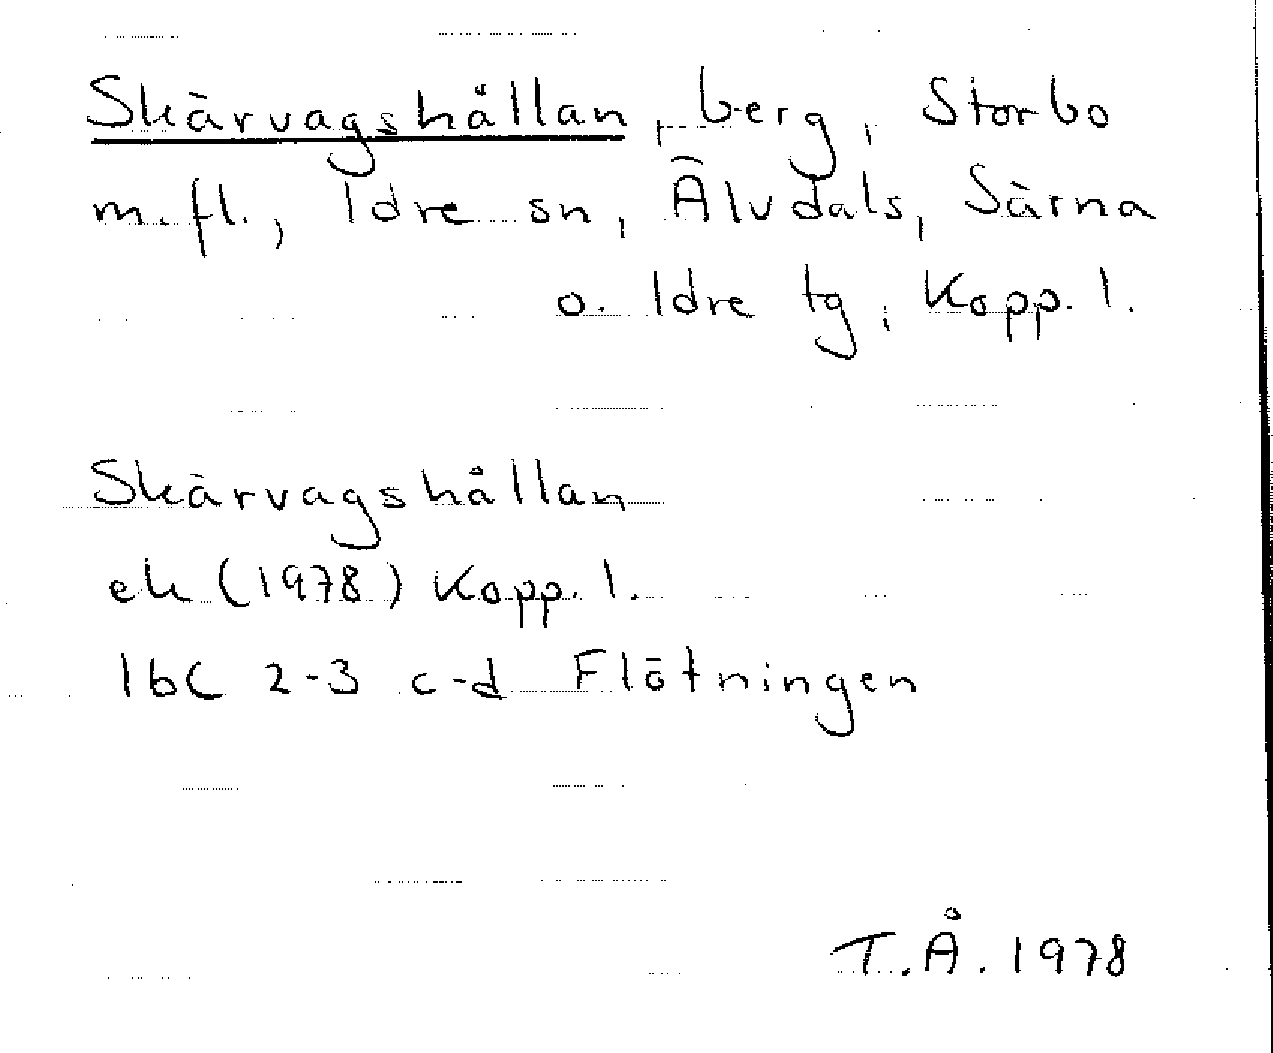 Skärvagshållan, berg, Storbo
m.fl., Idre sn, Älvdals, Särna
o. Idre tg, Kopp. l.
Skärvagshållan
ek (1978) Kopp. l.
16C 2-3 c-d Flötningen
T.Å. 1978